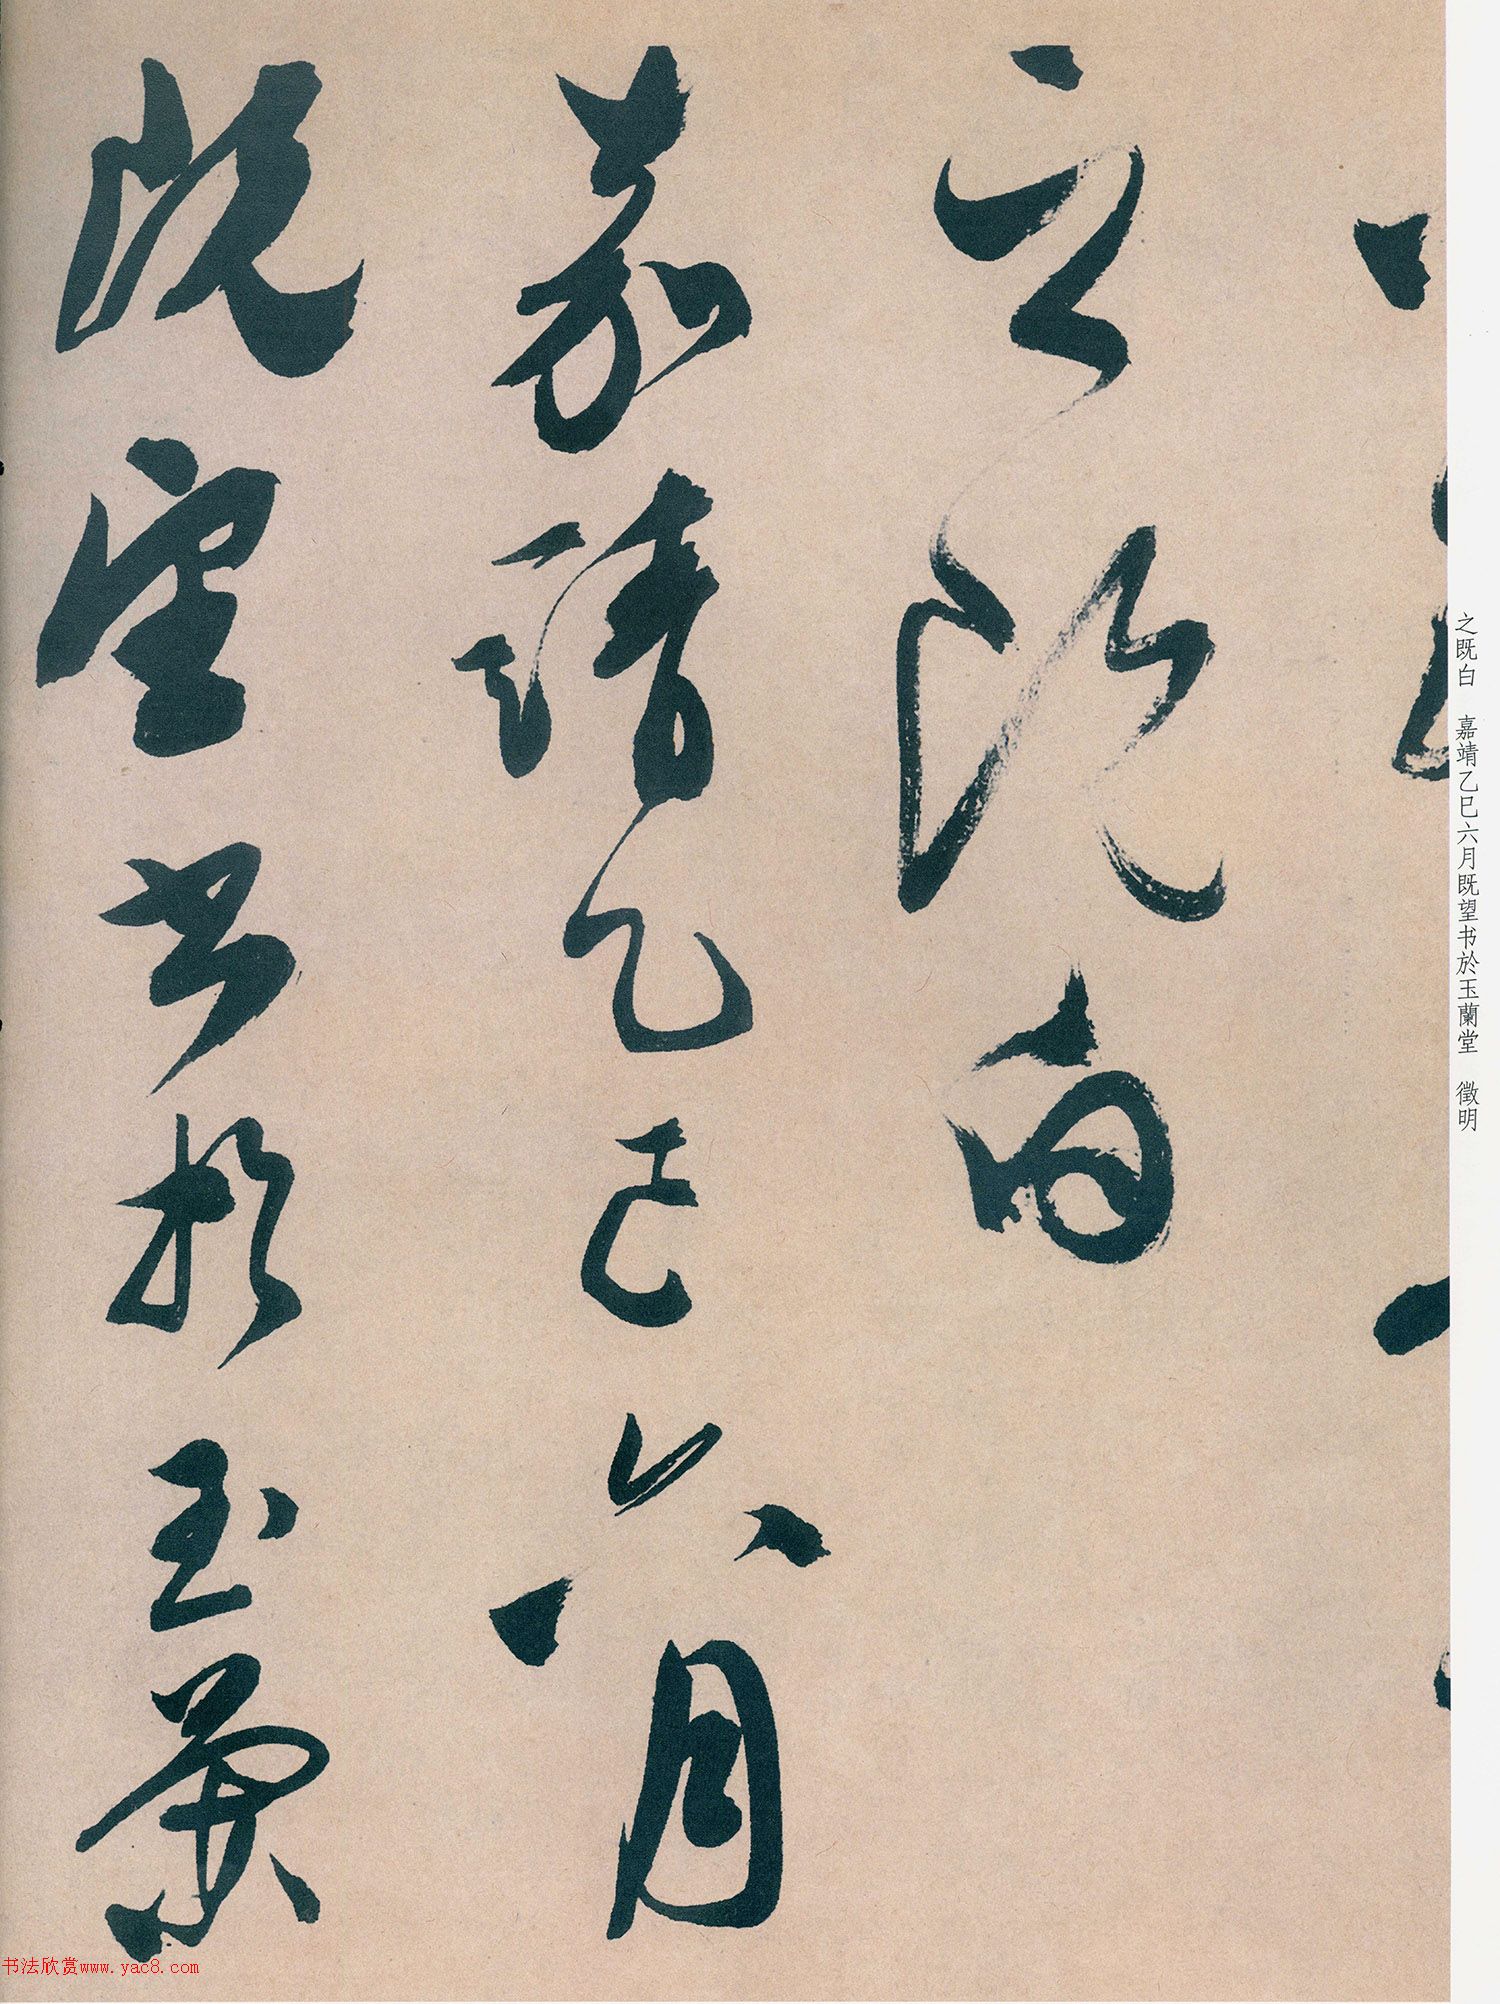 之既白
嘉靖乙巳六月
既望书於玉蘭
之既白 嘉靖乙巳六月既望书於玉蘭堂 徵明
书法欣赏www.yac8.com